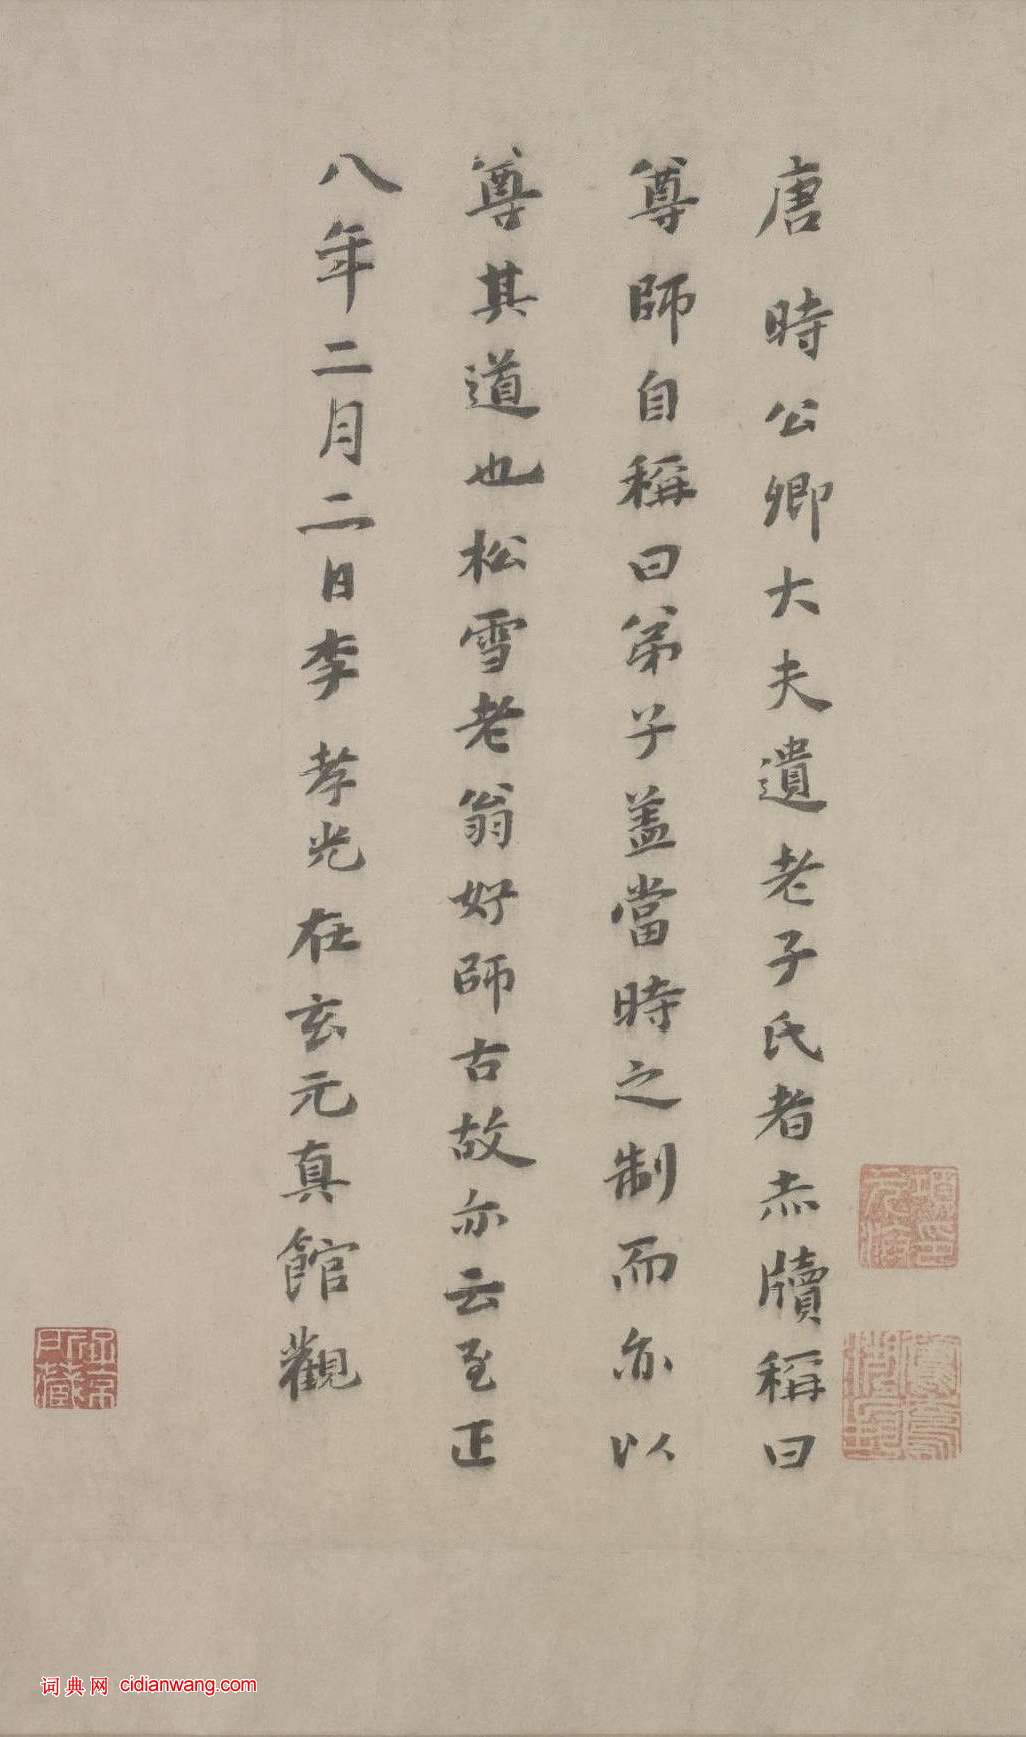 唐時公卿大夫遺老子氏者亦牘稱曰
尊師自稱曰弟子蓋當時之制而亦以
尊其道也松雪老翁好師古故亦云至正
八年二月二日李孝光在玄元真館觀
詞典网 cidianwang.com